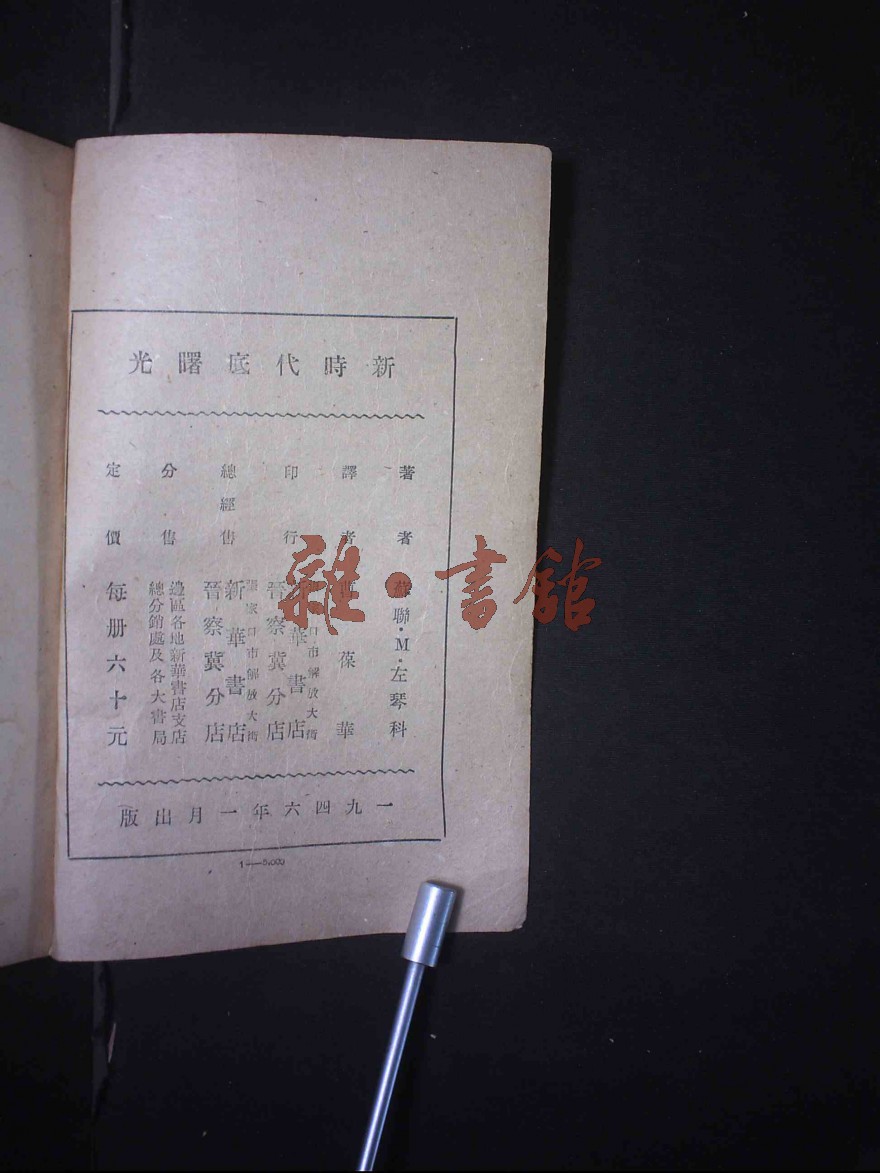 新時代底曙光
著者 蘇聯·M·左琴科
譯者 葆華
印行 口市解放大街
新華書店
晉察冀分店
總經售 張家口市解放大街
新華書店
晉察冀分店
分售 邊區各地新華書店支店
總分銷處及各大書局
定價 每册六十元
一九四六年一月出版
1——5,000
雜·書館